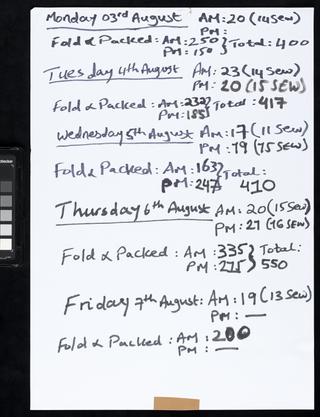 Monday 03rd August AM: 20 (14 Sew)
PM:
Fold & Packed: AM: 250 } Total: 400
PM: 150
Tuesday 4th August AM: 23 (14 Sew)
PM: 20 (15 SEW)
Fold & Packed: AM: 232 } Total: 417
PM: 185
Wednesday 5th August AM: 17 (11 Sew)
PM: 19 (15 SEW)
Fold & Packed: AM: 163 } Total:
PM: 247 410
Thursday 6th August AM: 20 (15 Sew)
PM: 21 (16 SEW)
Fold & Packed: AM: 335 } Total:
PM: 215 550
Friday 7th August: AM: 19 (13 Sew)
PM: —
Fold & Packed: AM: 200
PM: —